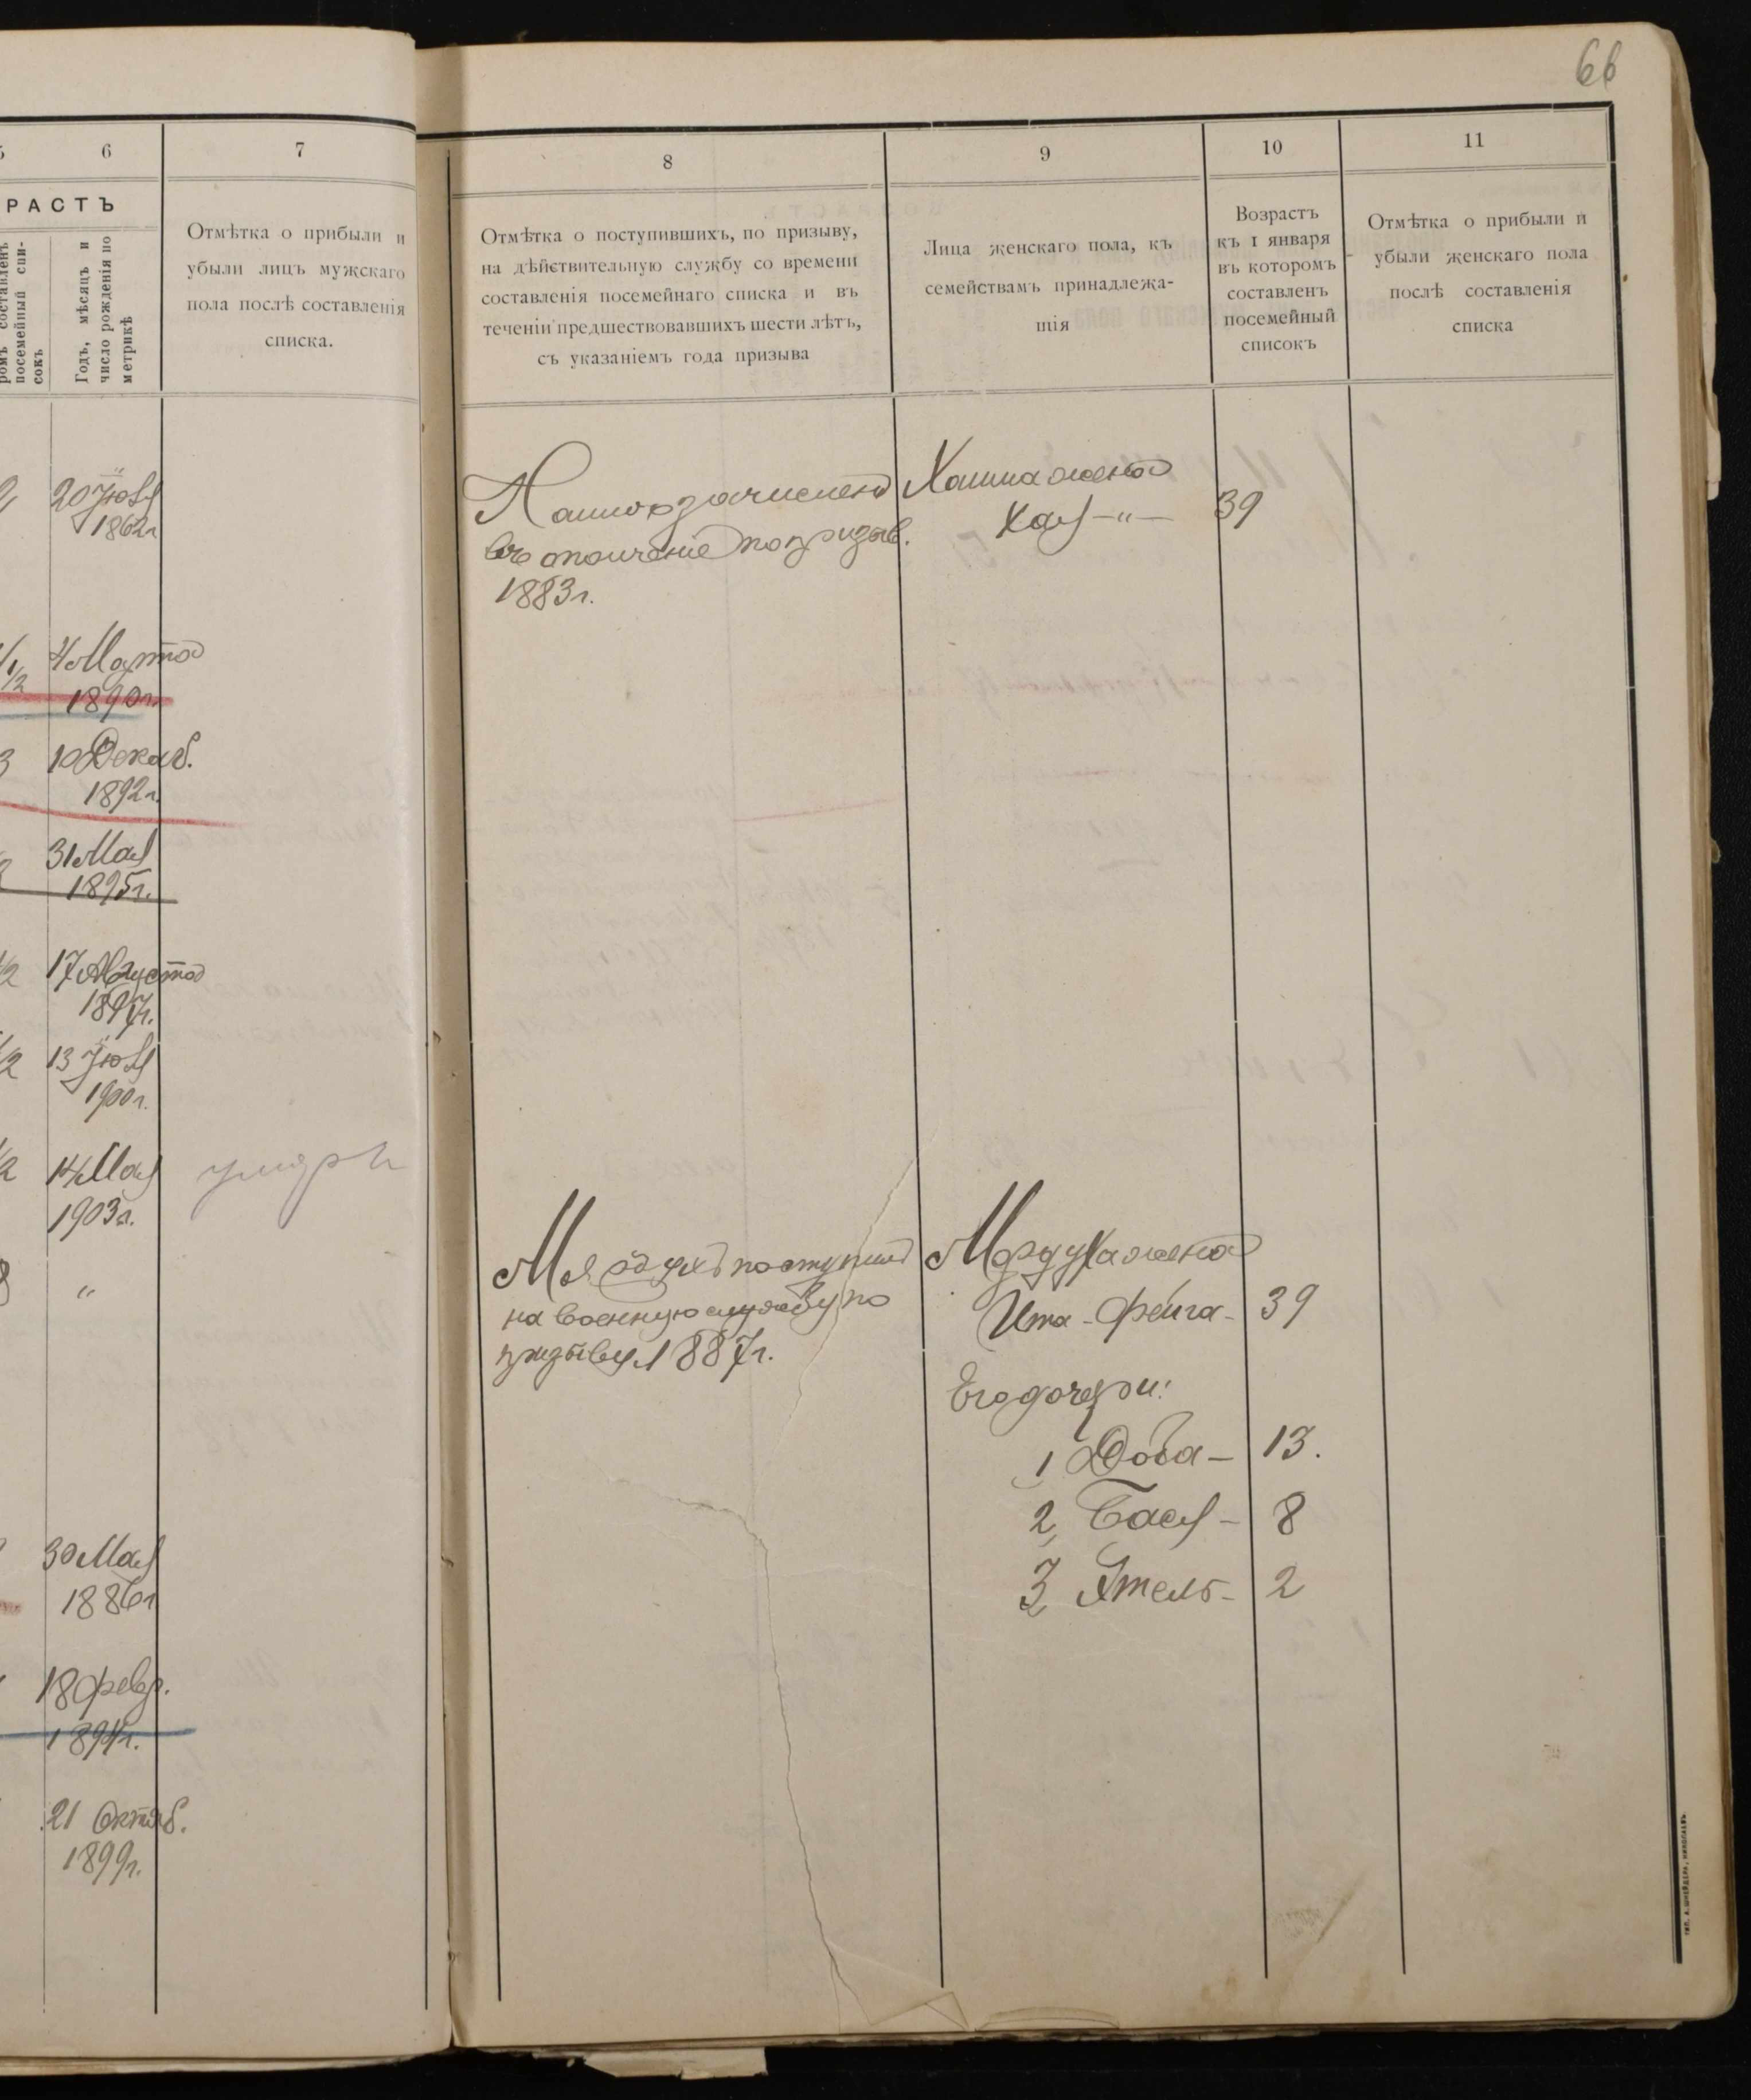 66
5
6
7
РАСТЪ
ромъ составленъ
посемейный спи-
сокъ
Годъ, мѣсяцъ и
число рожденія по
метрикѣ
Отмѣтка о прибыли и
убыли лицъ мужскаго
пола послѣ составленія
списка.
20 Іюля
1862 г
4 Марта
1/2
1890 г.
3
10 Декаб.
1892 г.
31 Мая
1895 г.
1/2
17 Августа
1897 г.
1/2
13 Іюля
1900 г.
1/2
14 Мая
умеръ
1903 г.
8
"
30 Мая
1886 г
18 февр.
1894 г.
21 Октяб.
1899 г.
8
9
10
11
Отмѣтка о поступившихъ, по призыву,
на дѣйствительную службу со времени
составленія посемейнаго списка и въ
теченіи предшествовавшихъ шести лѣтъ,
съ указаніемъ года призыва
Лица женскаго пола, къ
семействамъ принадлежа-
щія
Возрастъ
къ 1 января
въ которомъ
составленъ
посемейный
списокъ
Отмѣтка о прибыли и
убыли женскаго пола
послѣ составленія
списка
зачисленъ
въ ополченіе по призыв.
1883 г.
жена
Хая - " -
39
поступилъ
на военную службу по
призыву 1887 г.
Мордуха жена
Ита - Фейга -
39
Его дочери:
1 Доба -
13.
2, Бася -
8
3, Этель -
2